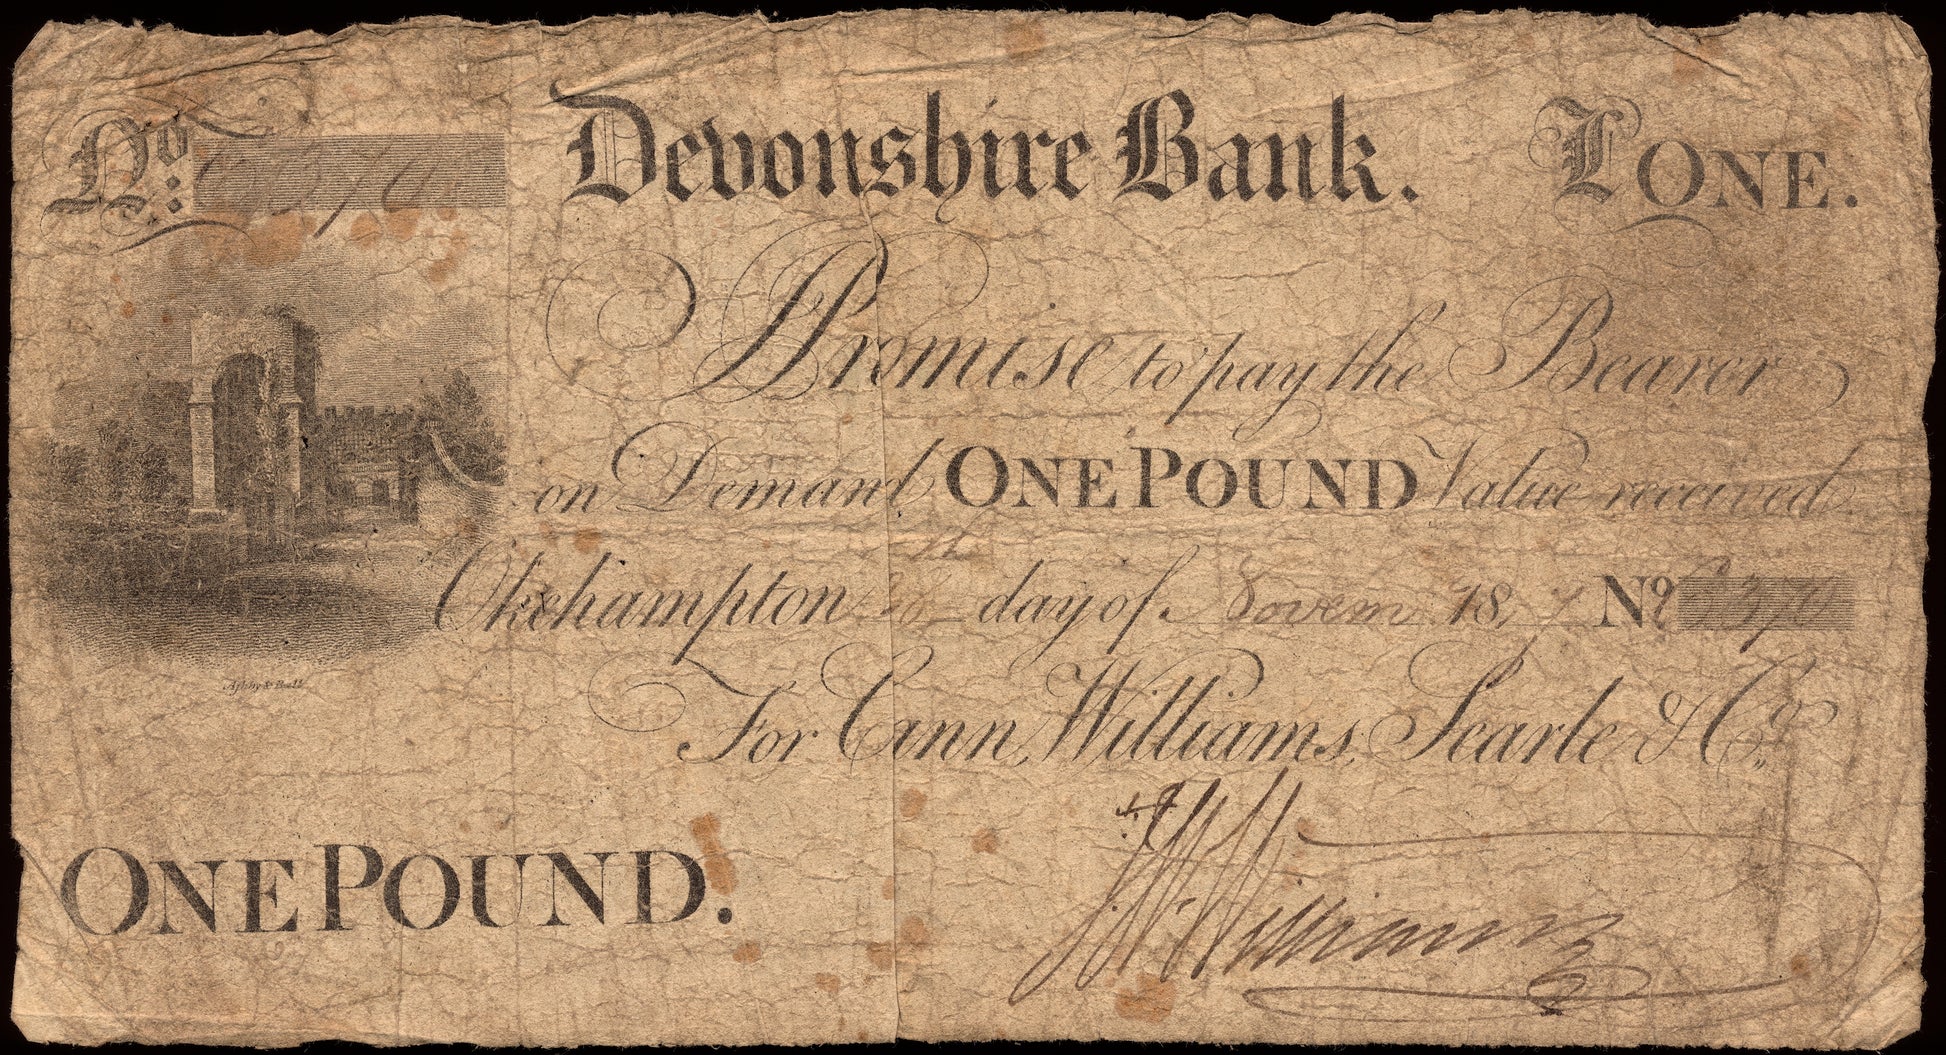 No:
Devonshire Bank.
I ONE.
I Promise to pay the Bearer
on Demand ONE POUND Value received.
Okehampton day of Novem 18 7 No
For Cann, Williams, Searle & Co.
Ashby &
ONE POUND.
Williams